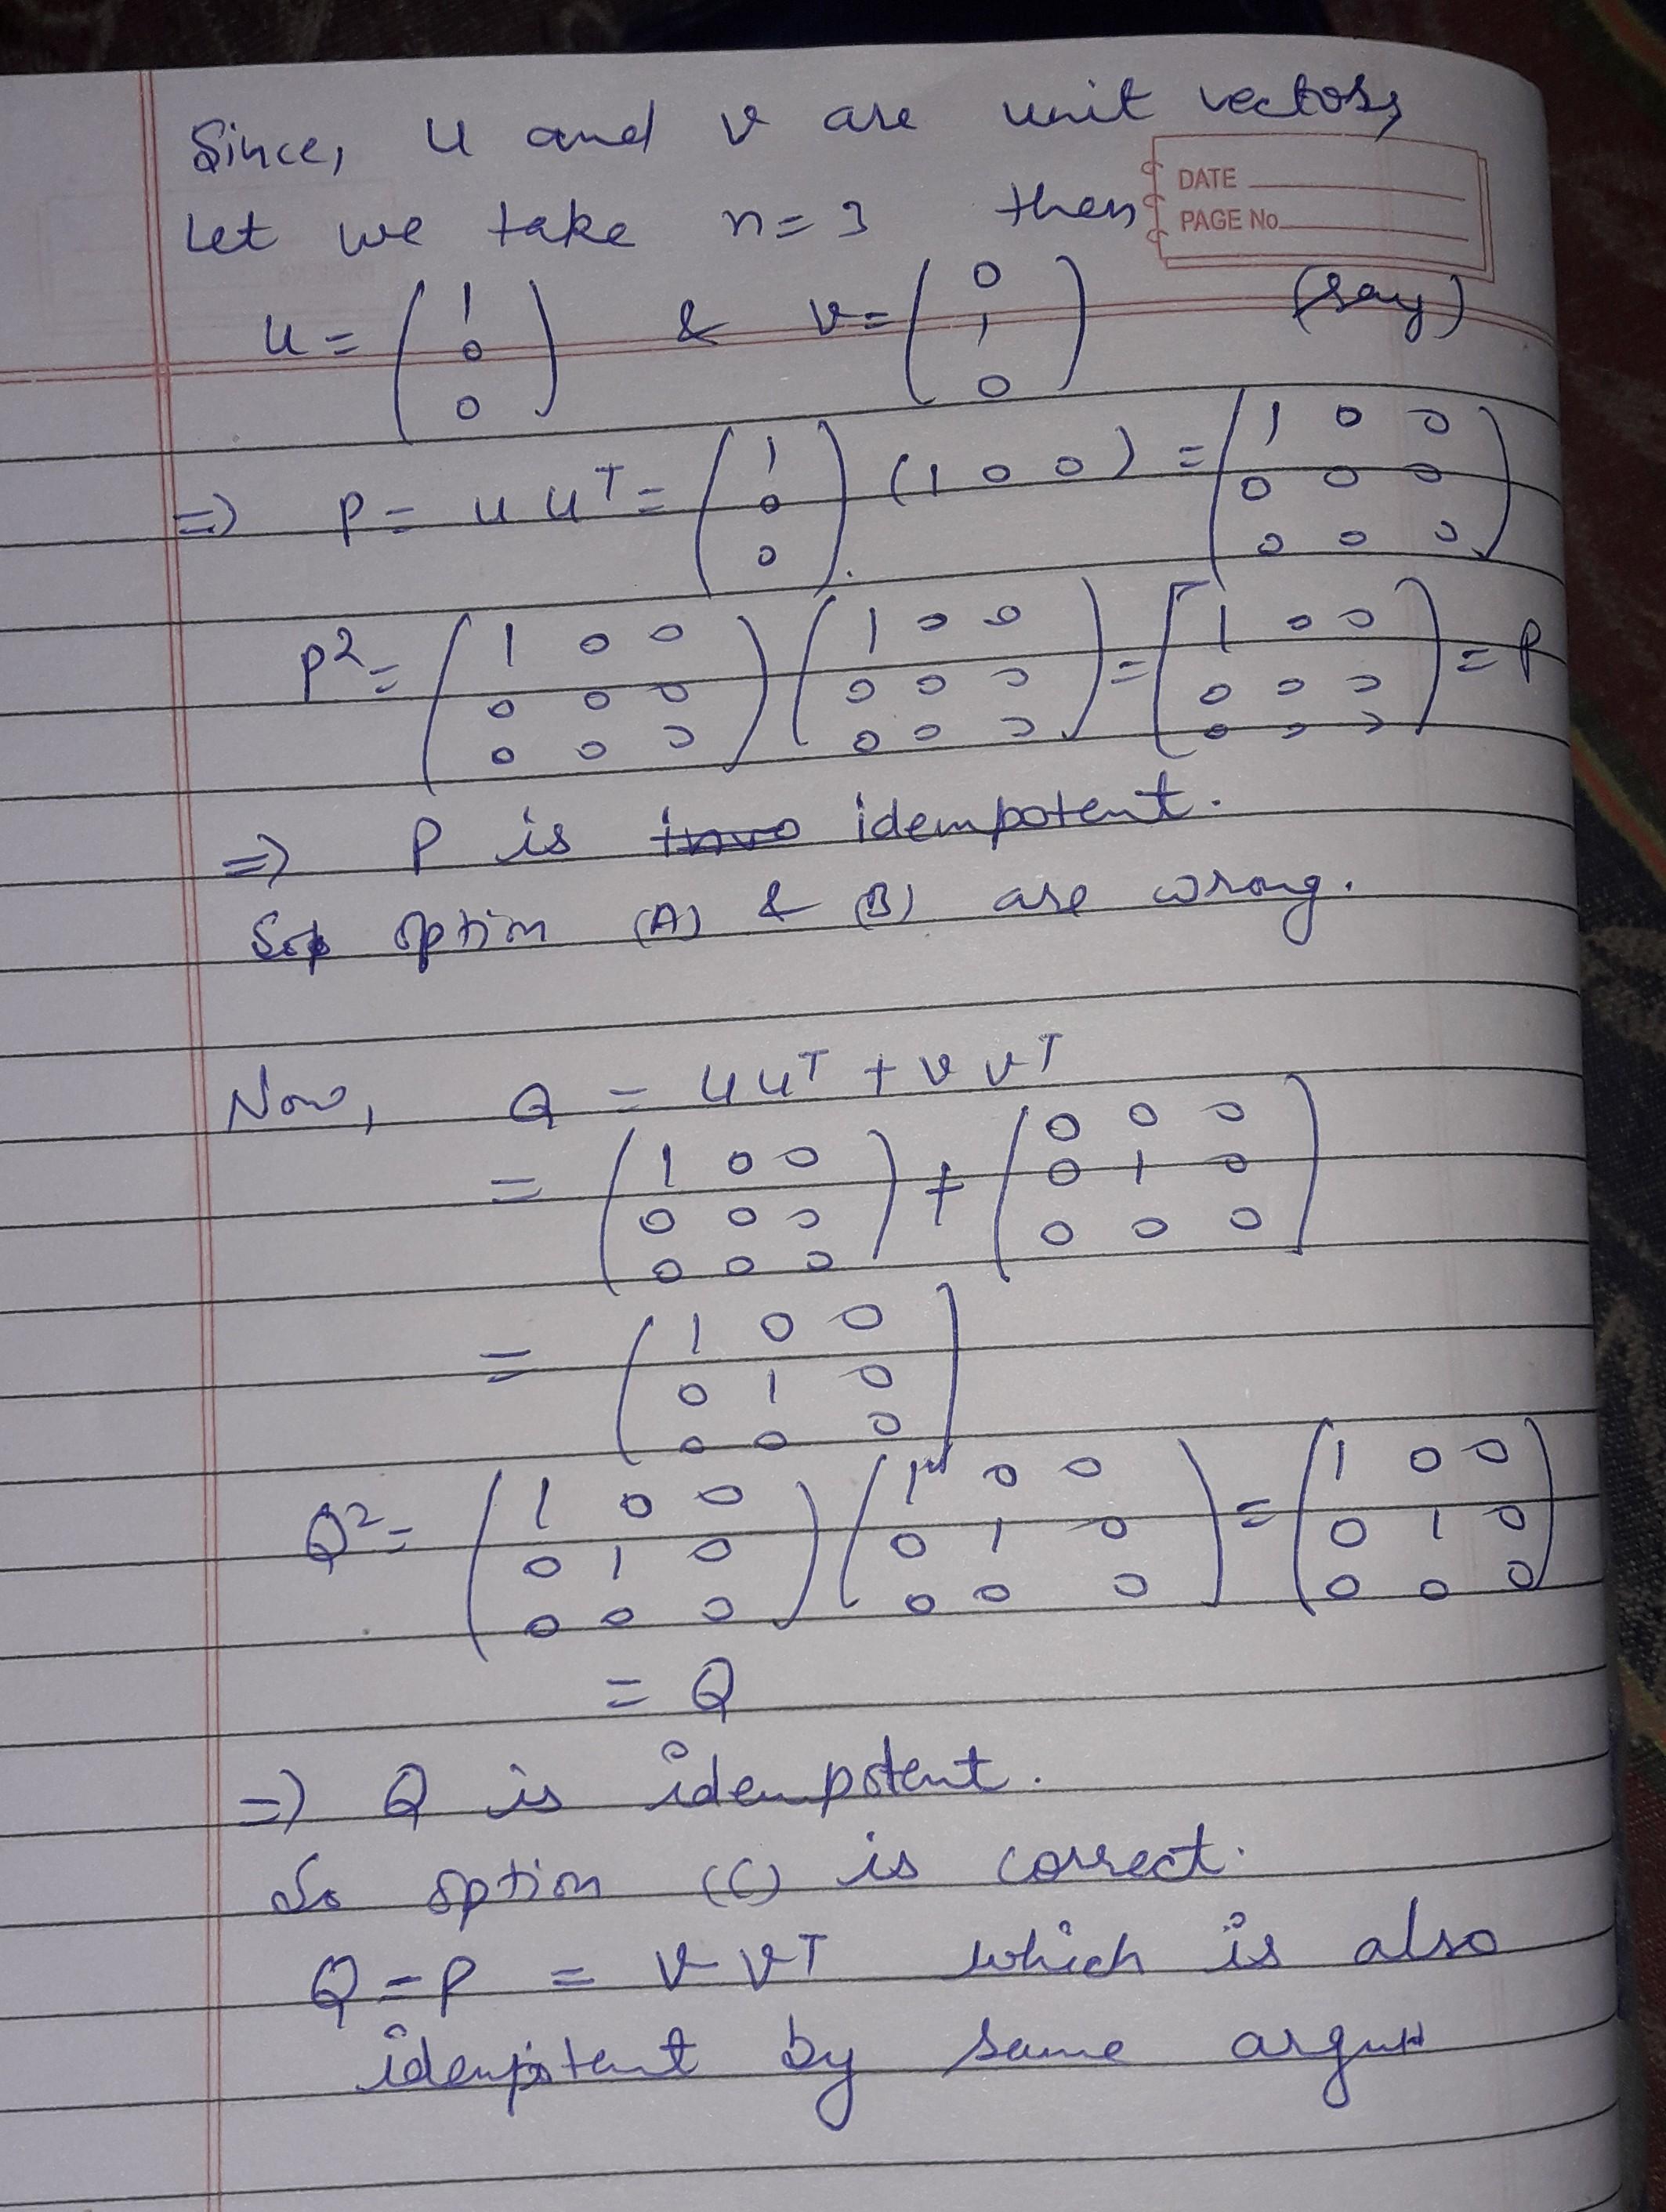 Since, u and v are unit vectors,
DATE
Let we take n=3 then
PAGE No.
u = (1 0 0) & v = (0 1 0) (say)
=> P = u u^T = (1 0 0) (1 0 0) = (1 0 0 0 0 0 0 0 0)
P^2 = (1 0 0 0 0 0 0 0 0) (1 0 0 0 0 0 0 0 0) = [1 0 0 0 0 0 0 0 0) = P
=> P is idempotent.
So option (A) & (B) are wrong.
Now, Q = u u^T + v v^T
= (1 0 0 0 0 0 0 0 0) + (0 0 0 0 1 0 0 0 0)
= (1 0 0 0 1 0 0 0 0)
Q^2 = (1 0 0 0 1 0 0 0 0) (1 0 0 0 1 0 0 0 0) = (1 0 0 0 1 0 0 0 0)
= Q
=> Q is idempotent.
So option (C) is correct.
Q - P = v v^T which is also
idempotent by same